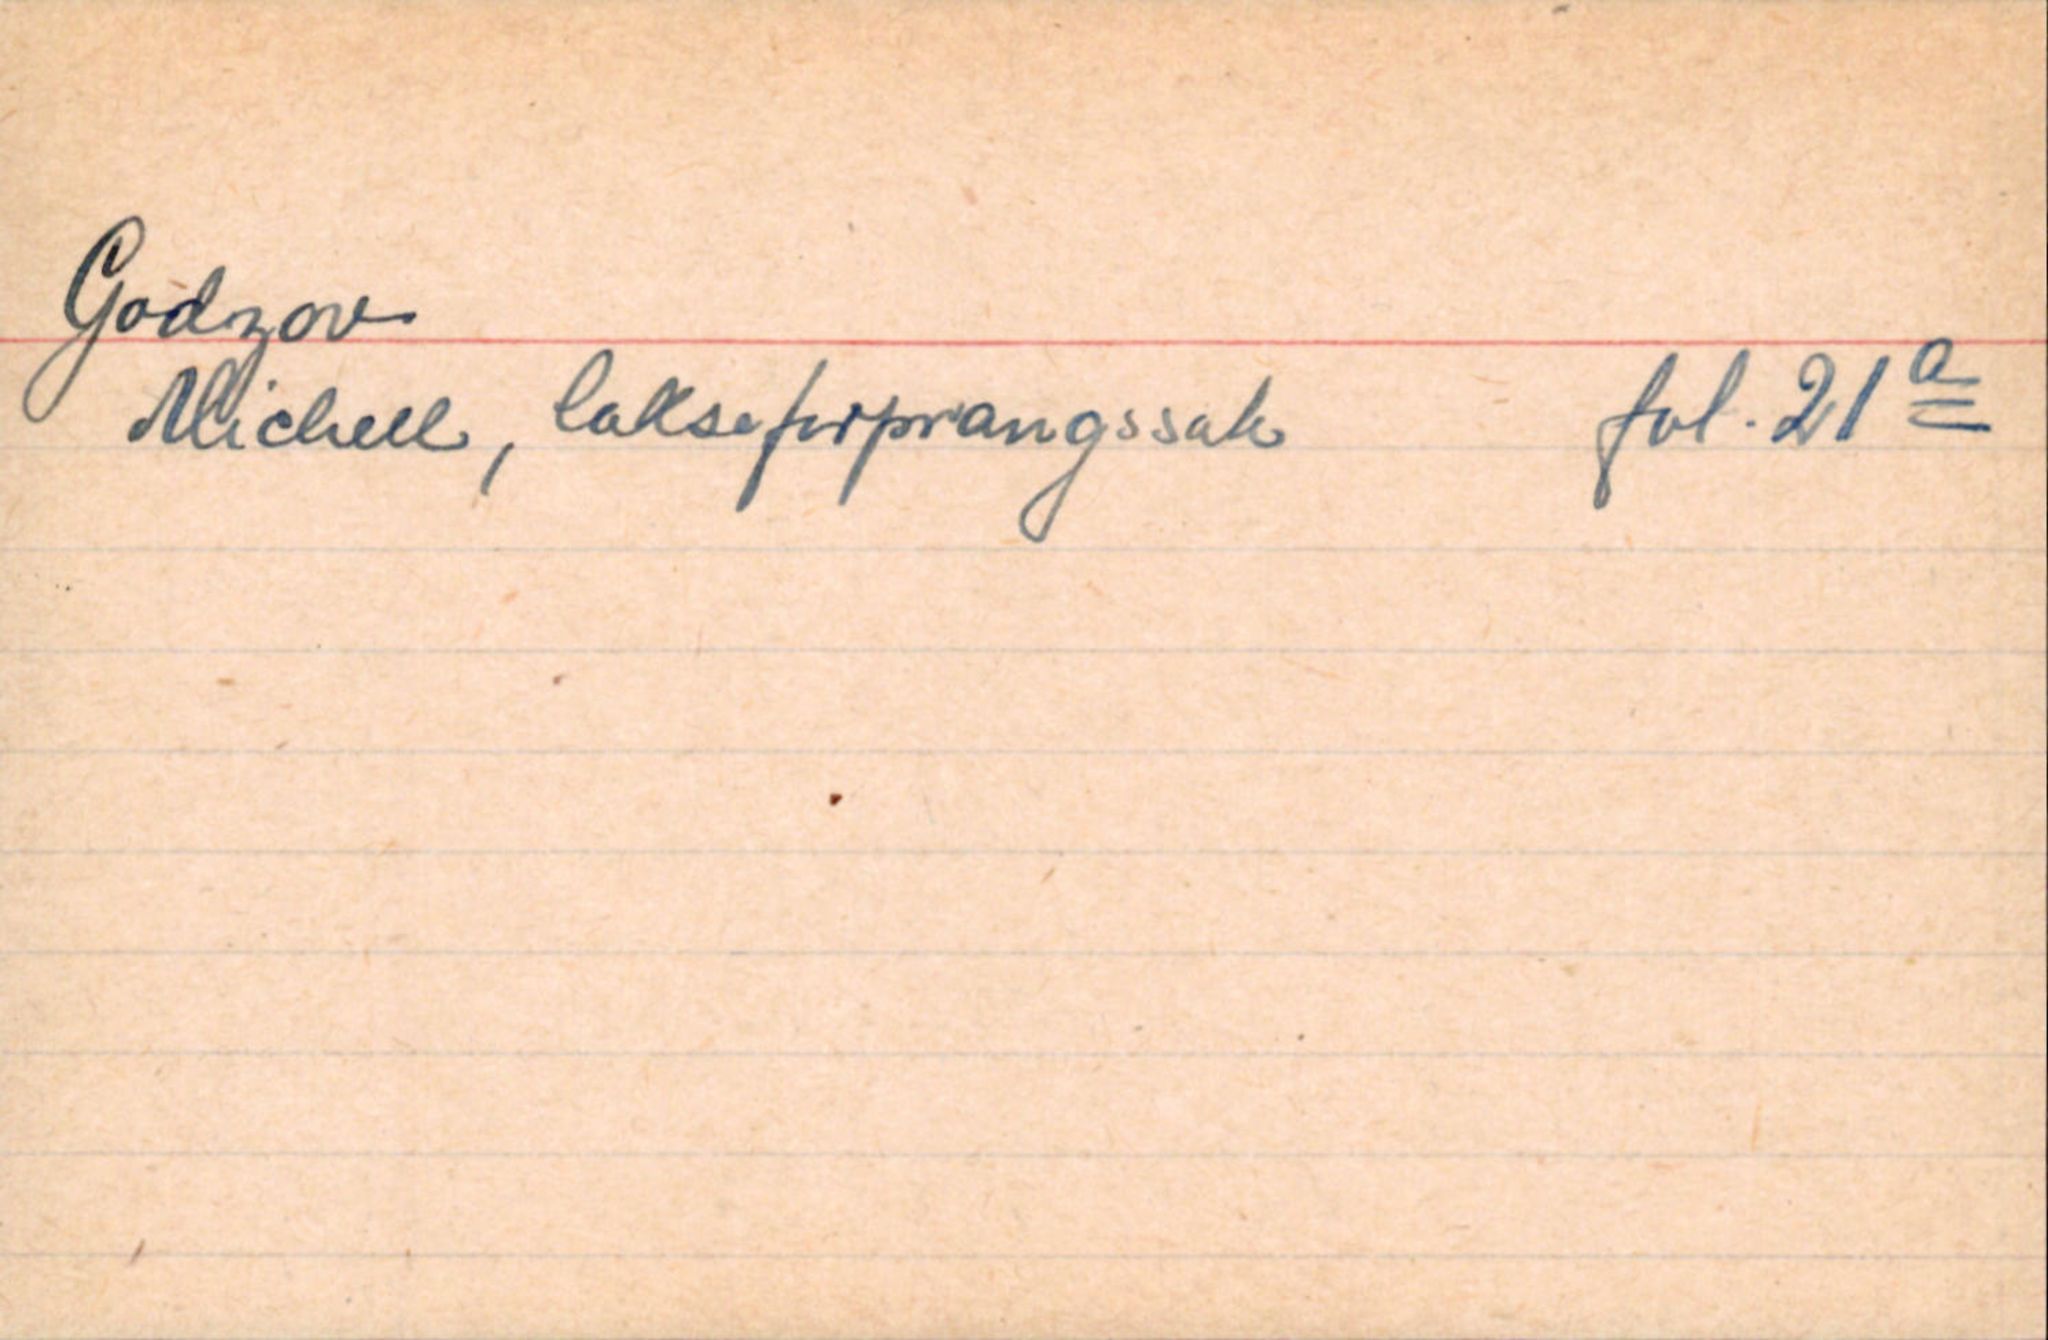 Godzov
Michell, lakseforprangssak fol. 21a